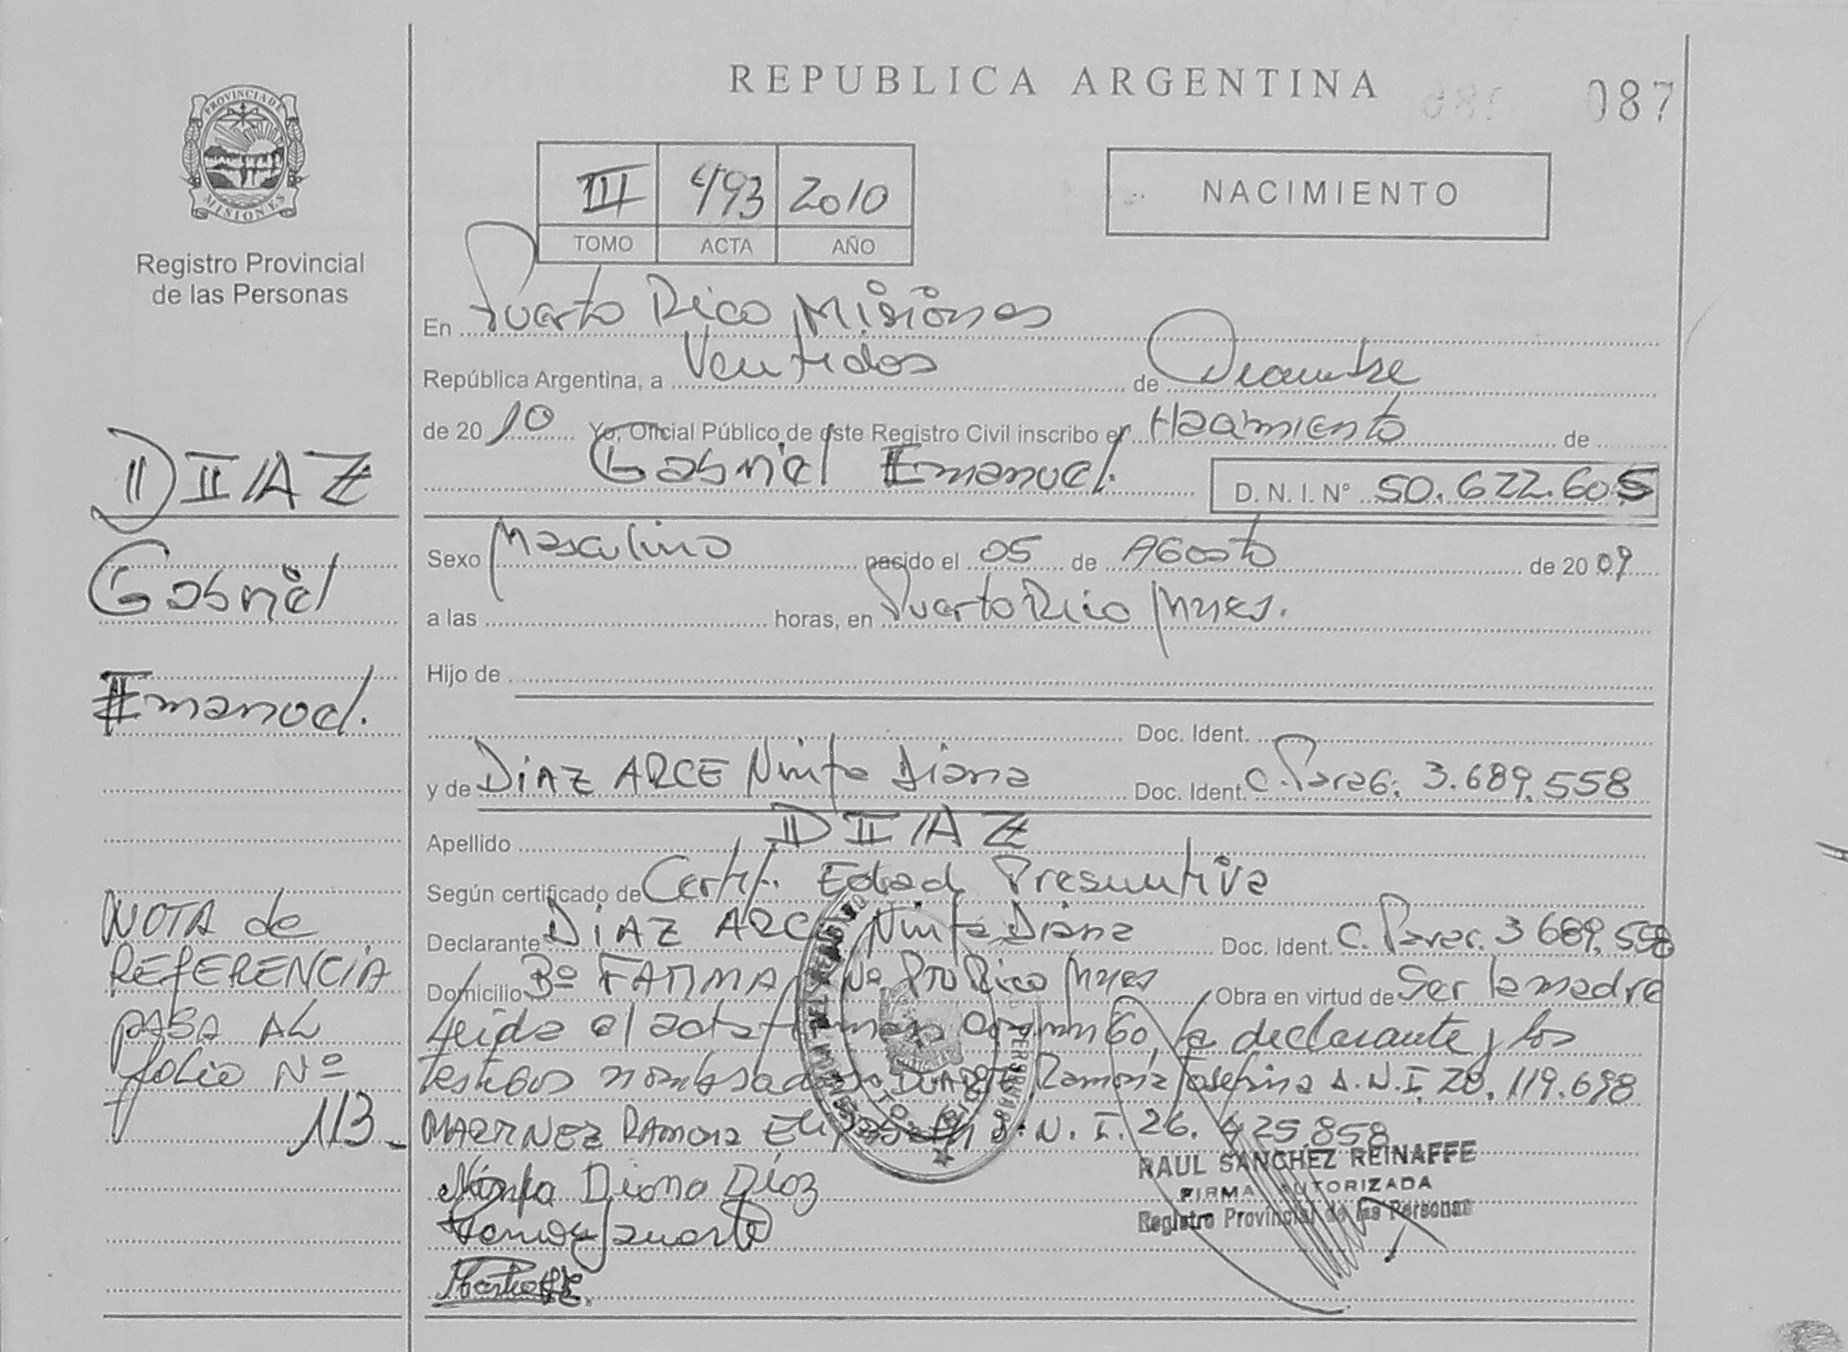 REPUBLICA ARGENTINA
087
PROVINCIA DE MISIONES
Registro Provincial
de las Personas
III 493 2010
TOMO ACTA AÑO
NACIMIENTO
En Puerto Rico, Misiones
República Argentina, a Ventidos de Diciembre
de 20 10 Yo, Oficial Público de este Registro Civil inscribo el Nacimiento de
Gabriel Emanuel. D. N. I. Nº 50.622.605
Sexo Masculino nacido el 05 de Agosto de 20 09
a las horas, en Puerto Rico Mnes.
Hijo de
Doc. Ident.
y de DIAZ ARCE Ninfa Diana Doc. Ident. C. Parag. 3.689.558
Apellido DIAZ
Según certificado de Certif. Edad Presuntiva
Declarante DIAZ ARCE Ninfa Diana Doc. Ident. C. Parag. 3689.558
Domicilio Bº FATIMA Pto Rico Mnes Obra en virtud de Ser la madre
Leida el acta firman conmigo, la declarante y los
testigos nombrados DUARTE Ramona Josefina D.N.I. 20.119.698
MARTINEZ RAMONA Elizabeth D.N.I. 26.425.858
Ninfa Diana Díaz
RAUL SANCHEZ REINAFFE
FIRMA AUTORIZADA
Registro Provincial de las Personas
DIAZ
Gabriel
Emanuel.
NOTA de
REFERENCIA
PASA AL
folio Nº
113-